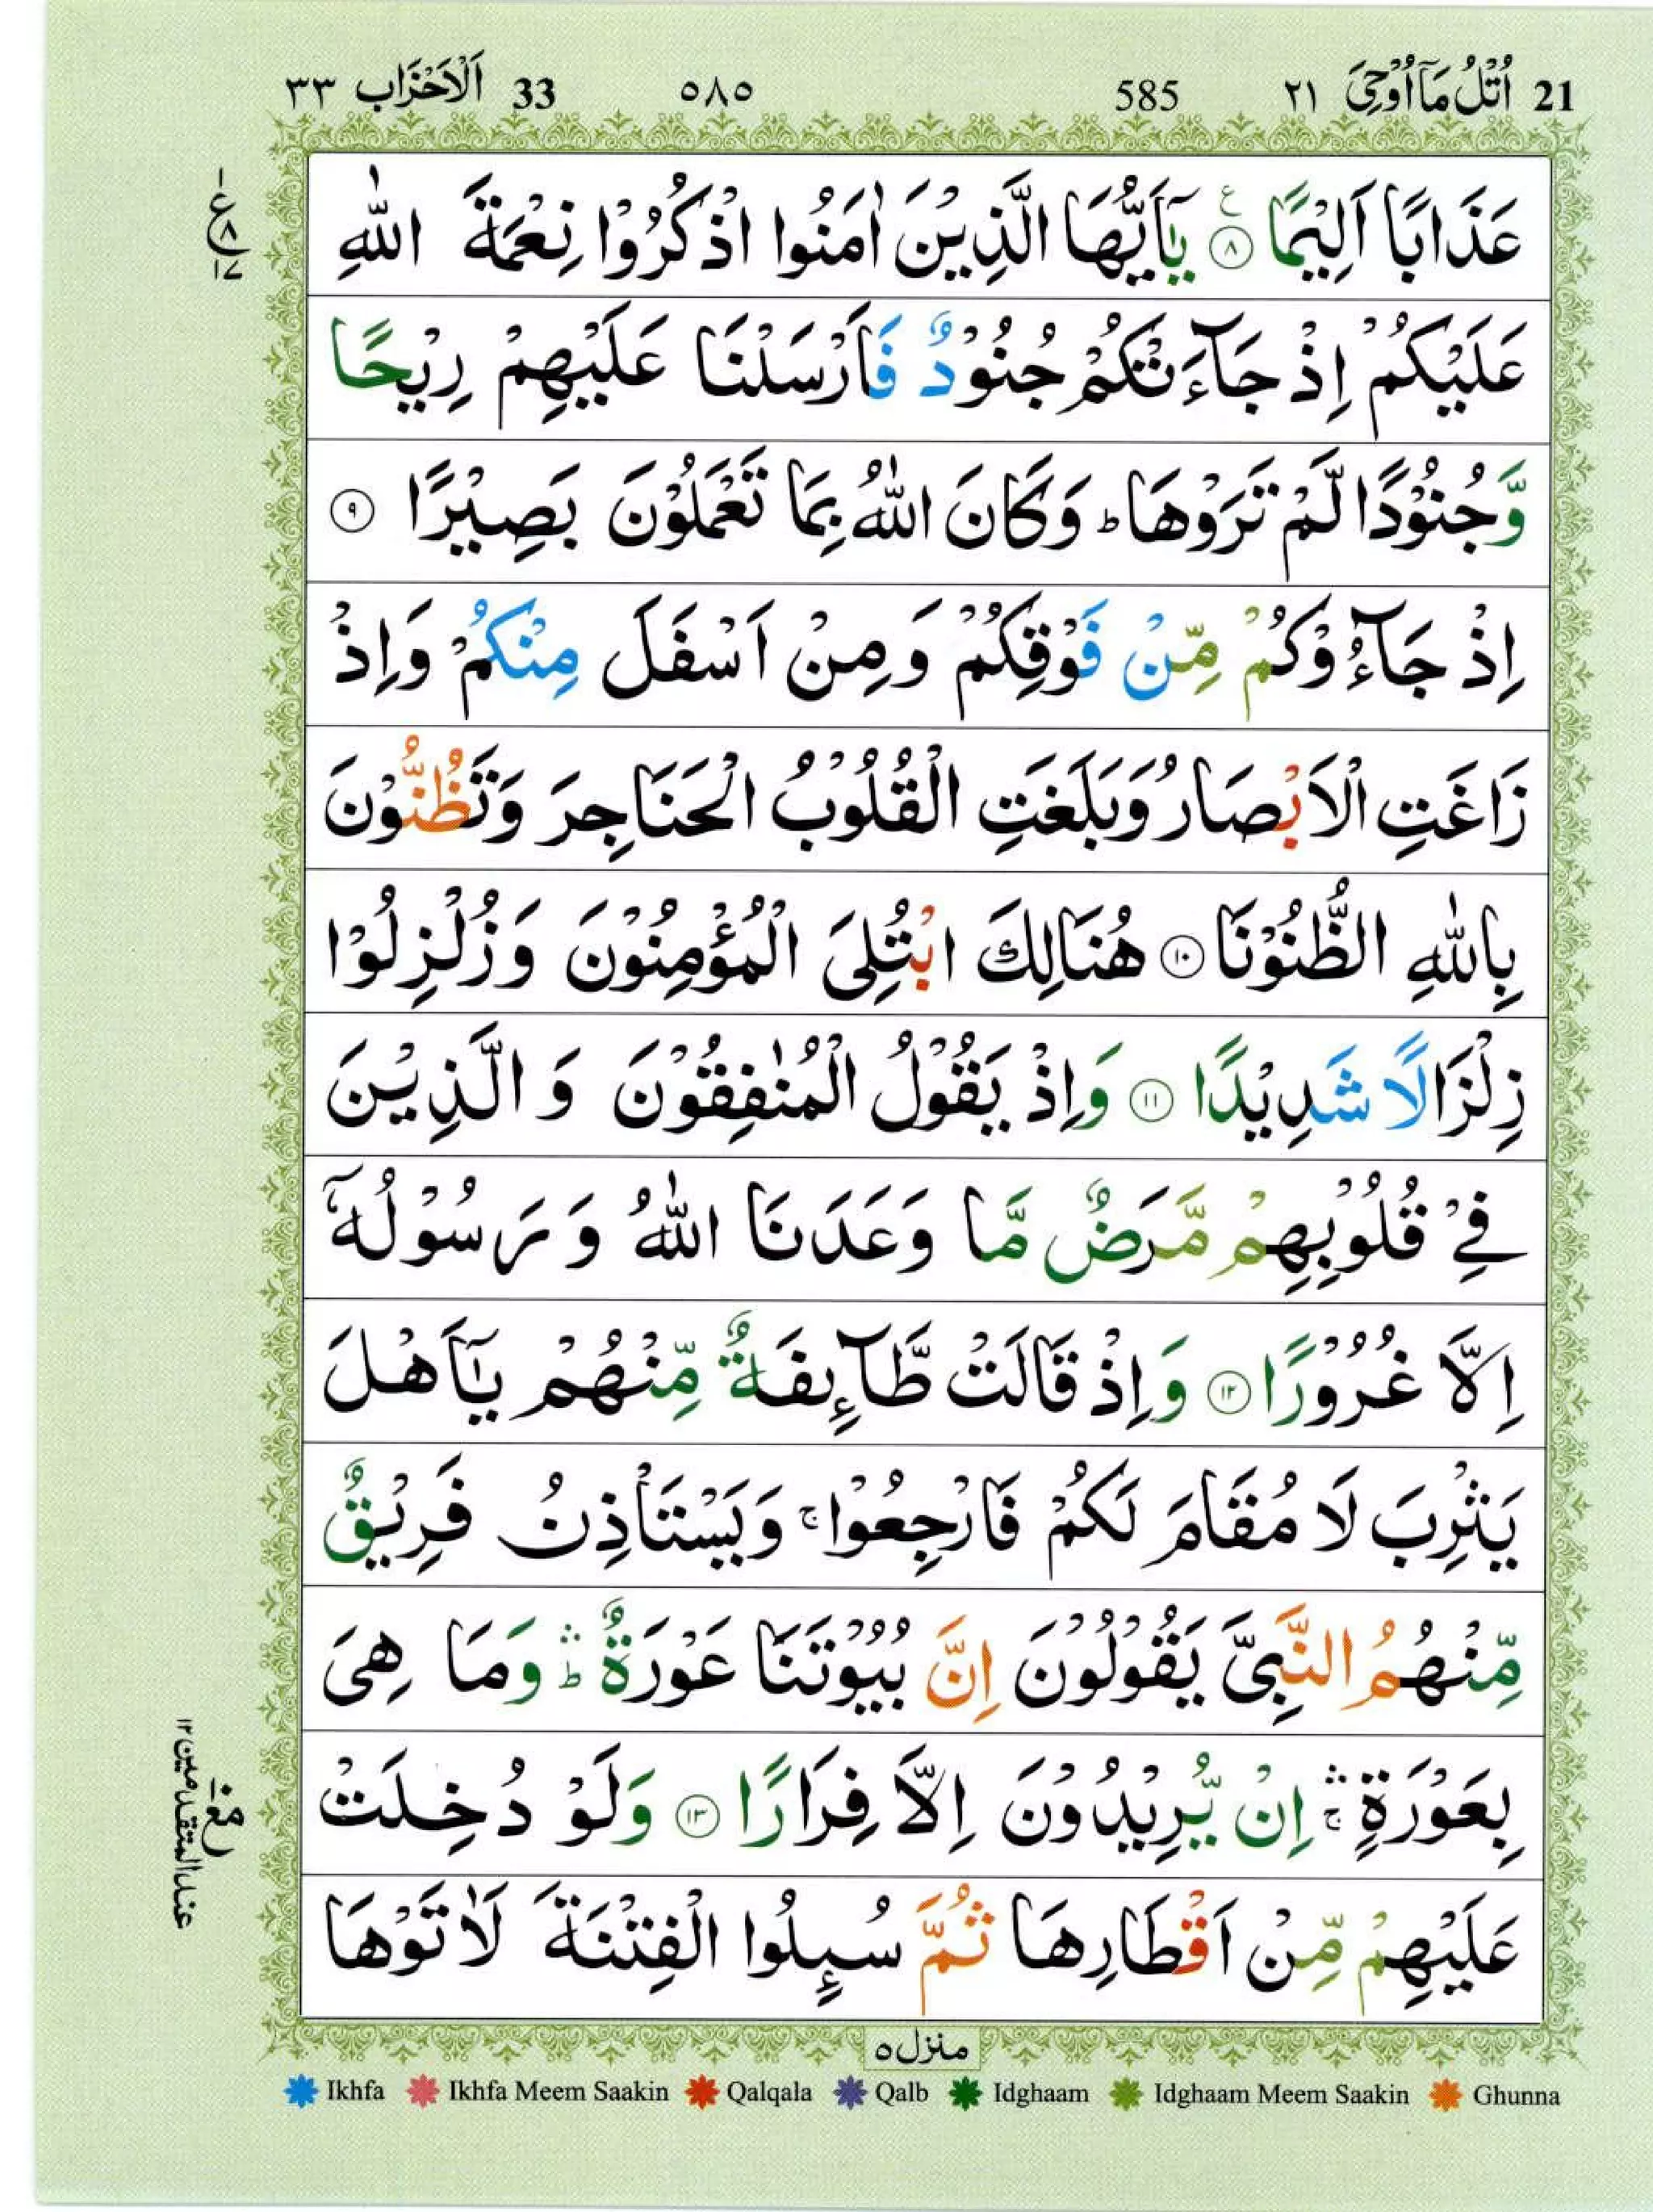 21 اُتْلُ مَاۤ اُوْحِیَ ٢١ 585 ٥٨٥ 33 اَلْاَحْزَاب ٣٣
عَذَابًا اَلِيْمًا ۝٨ يٰۤاَيُّهَا الَّذِيْنَ اٰمَنُوا اذْكُرُوْا نِعْمَةَ اللّٰهِ
عَلَيْكُمْ اِذْ جَآءَتْكُمْ جُنُوْدٌ فَاَرْسَلْنَا عَلَيْهِمْ رِيْحًا
وَّجُنُوْدًا لَّمْ تَرَوْهَا ؕ وَكَانَ اللّٰهُ بِمَا تَعْمَلُوْنَ بَصِيْرًا ۝٩
اِذْ جَآءُوْكُمْ مِّنْ فَوْقِكُمْ وَمِنْ اَسْفَلَ مِنْكُمْ وَاِذْ
زَاغَتِ الْاَبْصَارُ وَبَلَغَتِ الْقُلُوْبُ الْحَنَاجِرَ وَتَظُنُّوْنَ
بِاللّٰهِ الظُّنُوْنَا ۝١٠ هُنَالِكَ ابْتُلِيَ الْمُؤْمِنُوْنَ وَزُلْزِلُوْا
زِلْزَالًا شَدِيْدًا ۝١١ وَاِذْ يَقُوْلُ الْمُنٰفِقُوْنَ وَالَّذِيْنَ
فِيْ قُلُوْبِهِمْ مَّرَضٌ مَّا وَعَدَنَا اللّٰهُ وَرَسُوْلُهٗۤ
اِلَّا غُرُوْرًا ۝١٢ وَاِذْ قَالَتْ طَّآئِفَةٌ مِّنْهُمْ يٰۤاَهْلَ
يَثْرِبَ لَا مُقَامَ لَكُمْ فَارْجِعُوْا ۚ وَيَسْتَاْذِنُ فَرِيْقٌ
مِّنْهُمُ النَّبِيَّ يَقُوْلُوْنَ اِنَّ بُيُوْتَنَا عَوْرَةٌ ۛؕ وَمَا هِيَ
بِعَوْرَةٍ ۛۚ اِنْ يُّرِيْدُوْنَ اِلَّا فِرَارًا ۝١٣ وَلَوْ دُخِلَتْ
عَلَيْهِمْ مِّنْ اَقْطَارِهَا ثُمَّ سُئِلُوا الْفِتْنَةَ لَاٰتَوْهَا
منزل ٥
Ikhfa Ikhfa Meem Saakin Qalqala Qalb Idghaam Idghaam Meem Saakin Ghunna
ع ٨ ١٧
مع عند المتقدمين ١٢